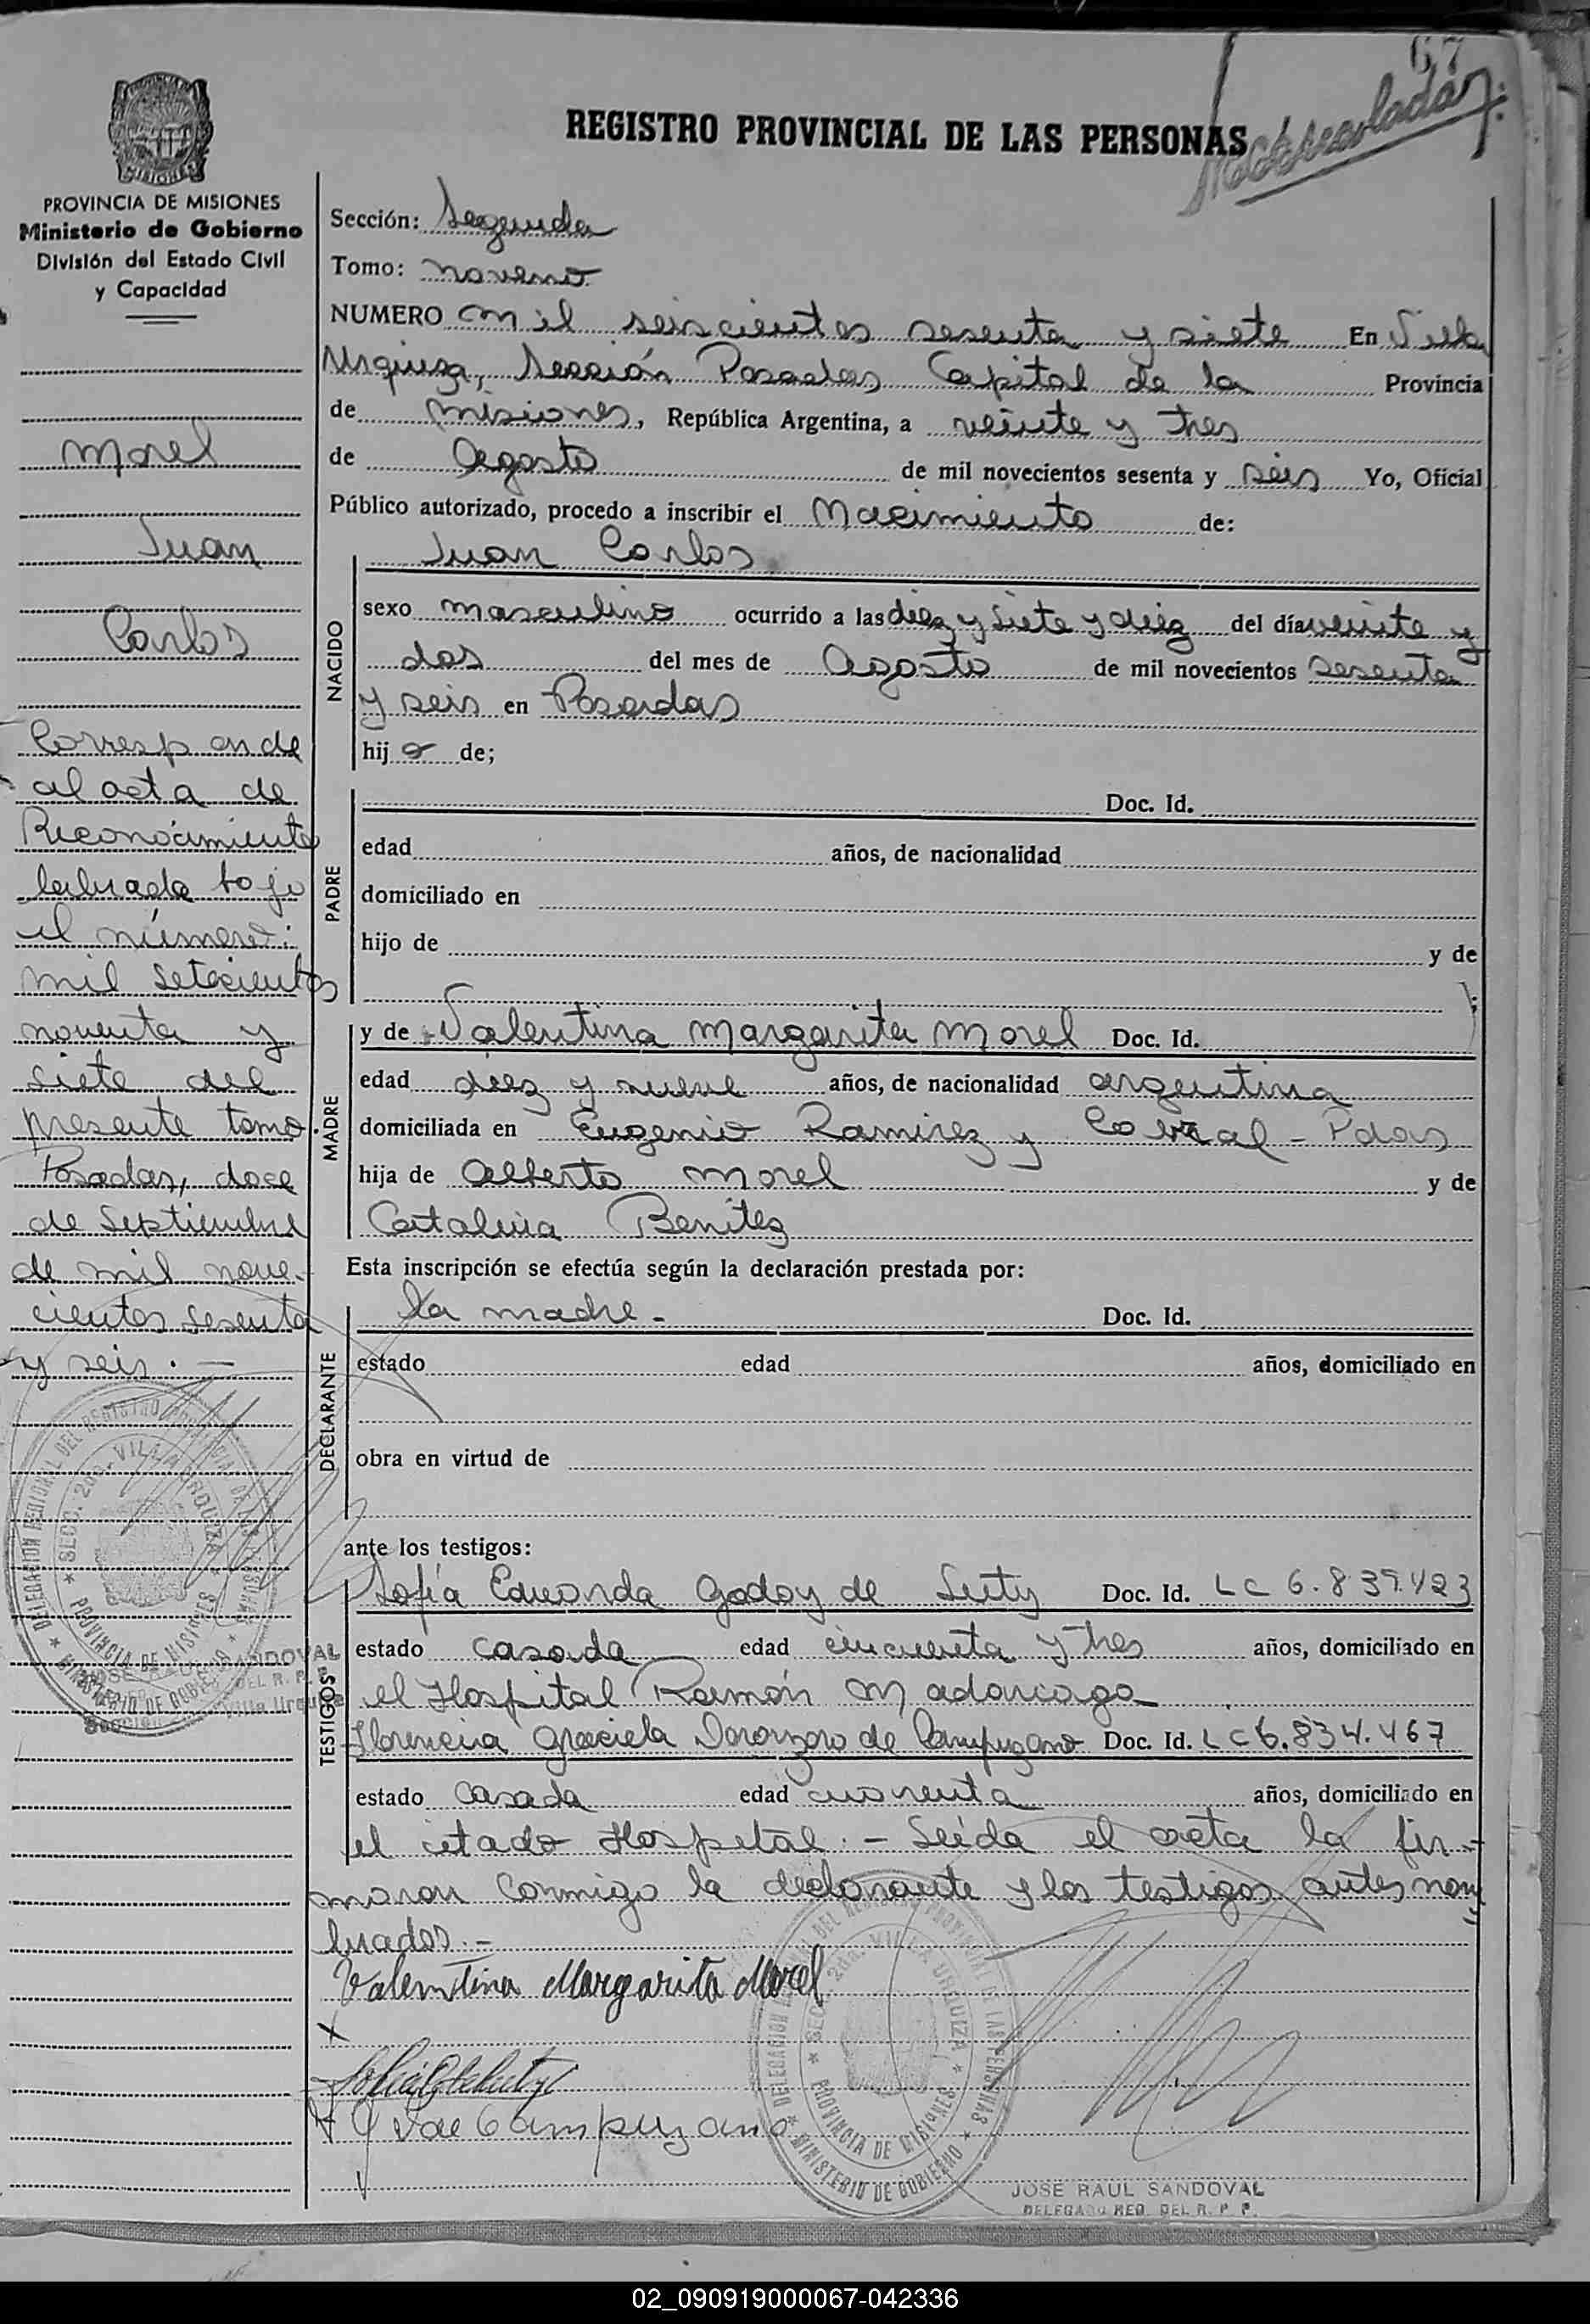 67
REGISTRO PROVINCIAL DE LAS PERSONAS
MISIONES
PROVINCIA DE MISIONES
Ministerio de Gobierno
División del Estado Civil
y Capacidad
Morel
Juan
Carlos
Corresponde
al acta de
Reconocimiento
labrada bajo
el número:
mil setecientos
noventa y
siete del
presente tomo.
Posadas, doce
de Septiembre
de mil nove-
cientos sesenta
y seis. —
Sección: Segunda
Tomo: noveno
NUMERO mil seiscientos sesenta y siete En Villa
Urquiza, Sección Posadas Capital de la Provincia
de Misiones, República Argentina, a veinte y tres
de Agosto de mil novecientos sesenta y seis Yo, Oficial
Público autorizado, procedo a inscribir el Nacimiento de:
Juan Carlos
NACIDO
sexo masculino ocurrido a las diez y siete y diez del día veinte y
dos del mes de Agosto de mil novecientos sesenta
y seis en Posadas
hijo de;
PADRE
Doc. Id.
edad años, de nacionalidad
domiciliado en
hijo de y de
;
MADRE
y de Valentina Margarita Morel Doc. Id.
edad diez y nueve años, de nacionalidad argentina
domiciliada en Eugenio Ramirez y Cabral - Pdas
hija de Alberto Morel y de
Catalina Benitez
Esta inscripción se efectúa según la declaración prestada por:
DECLARANTE
la madre - Doc. Id.
estado edad años, domiciliado en
obra en virtud de
ante los testigos:
TESTIGOS
Sofía Eduarda Godoy de Doc. Id. LC 6.839.123
estado casada edad cincuenta y tres años, domiciliado en
el Hospital Ramón Madariaga
Florencia Graciela de Campuzano Doc. Id. LC 6.834.467
estado casada edad cuarenta años, domiciliado en
el citado Hospital. — Leída el acta la fir-
maron conmigo la declarante y los testigos antes nom
brados. —
Valentina Margarita Morel
G V de Campuzano
DELEGACION REGIONAL DEL REGISTRO PROVINCIAL DE LAS PERSONAS
SECC. 2da. VILLA URQUIZA
PROVINCIA DE MISIONES
MINISTERIO DE GOBIERNO
JOSE RAUL SANDOVAL
DELEGADO REG. DEL R. P. P.
02_090919000067-042336